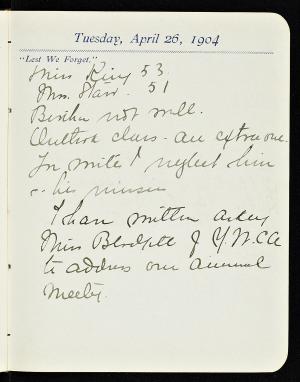 Tuesday, April 26, 1904
"Lest We Forget."
Miss King 53
Mrs. Starr. 51
not well.
class - an extra one.
I neglect him
his
I have written asking
Miss Blodgett of Y.W.C.A
to address our annual
Meeting.